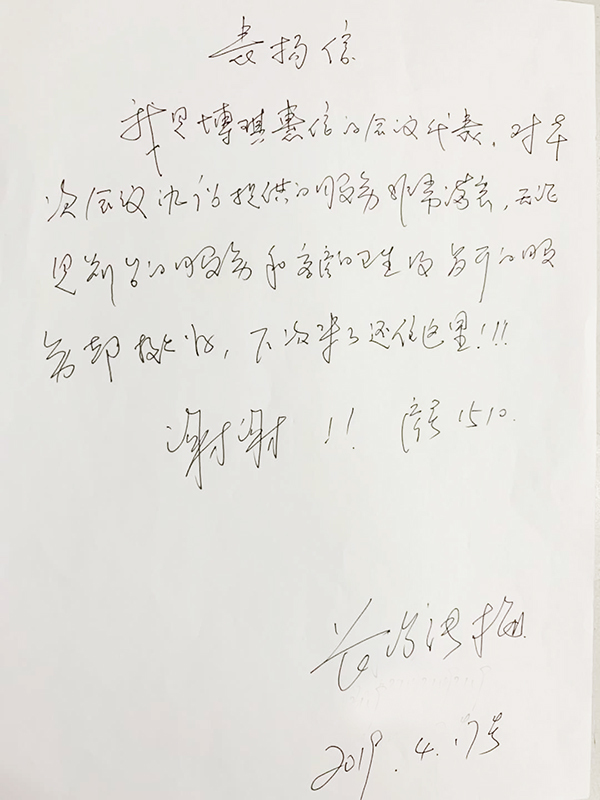 表扬信
我是博琪惠信的会议代表，对本
次会议酒店提供的服务非常满意，无论
是前台的服务和客房的卫生及餐厅的服
务都挺好，下次来了还住这里！！！
谢谢！！ 房号1510.
2019.4.17号